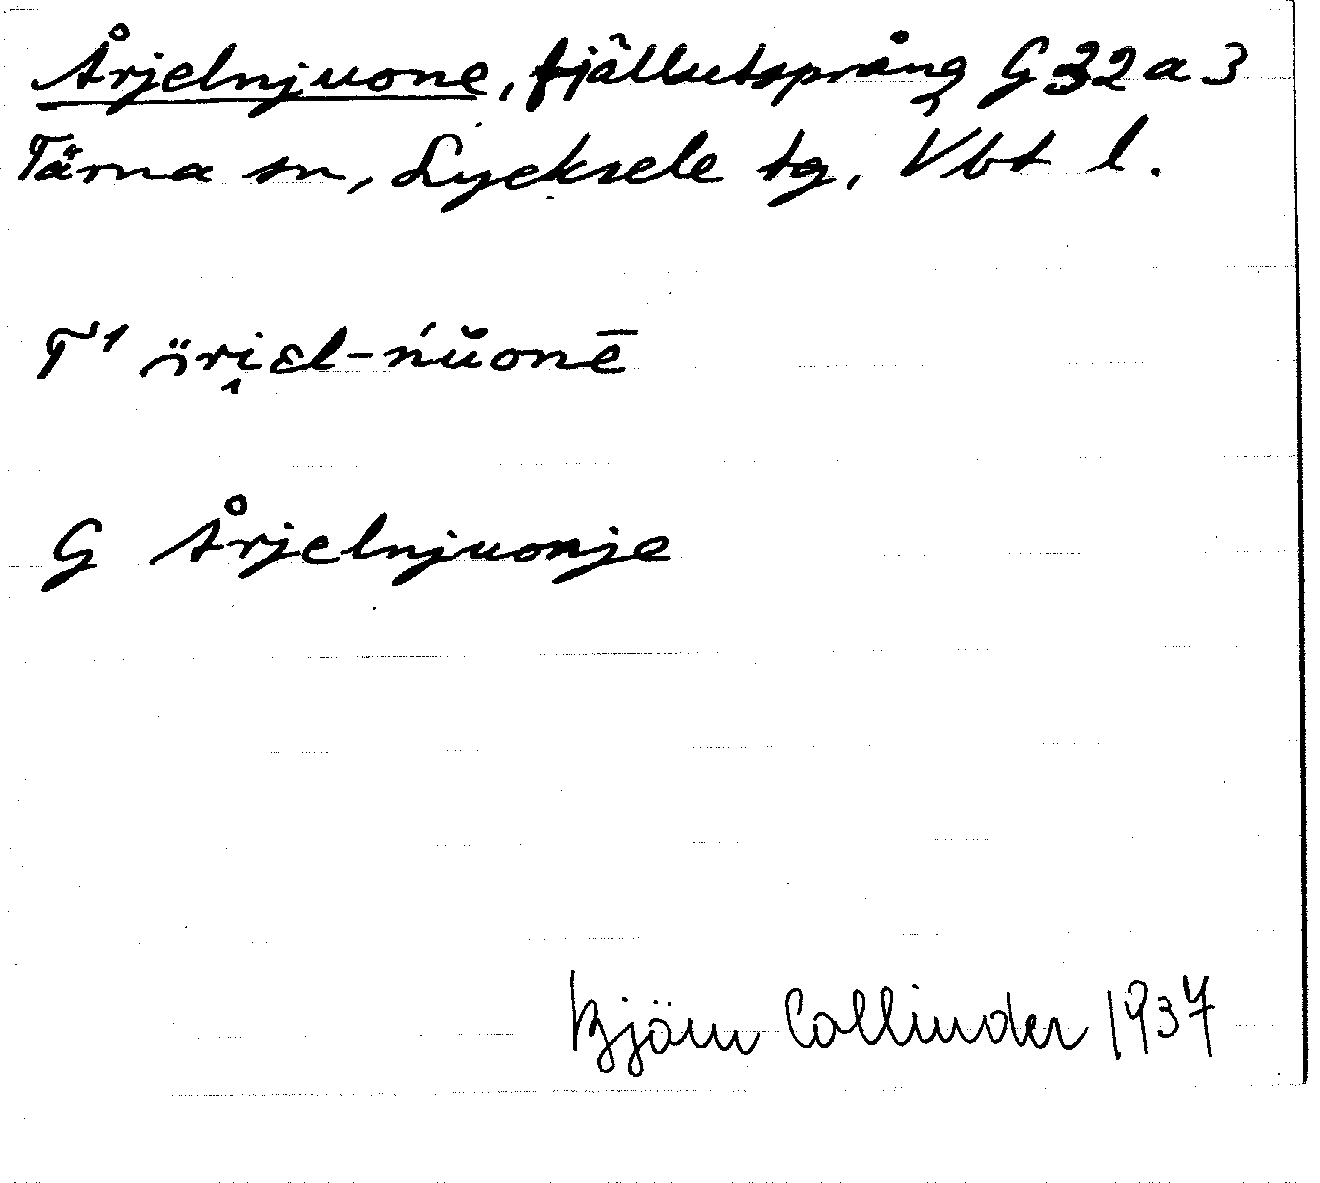 Årjelnjuone, fjällutsprång G 32 a 3
Tärna sn, Lycksele tg, Vbt l.
T¹ öri̭ɛl-ńŭonē
G Årjelnjuonje
Björn Collinder 1937